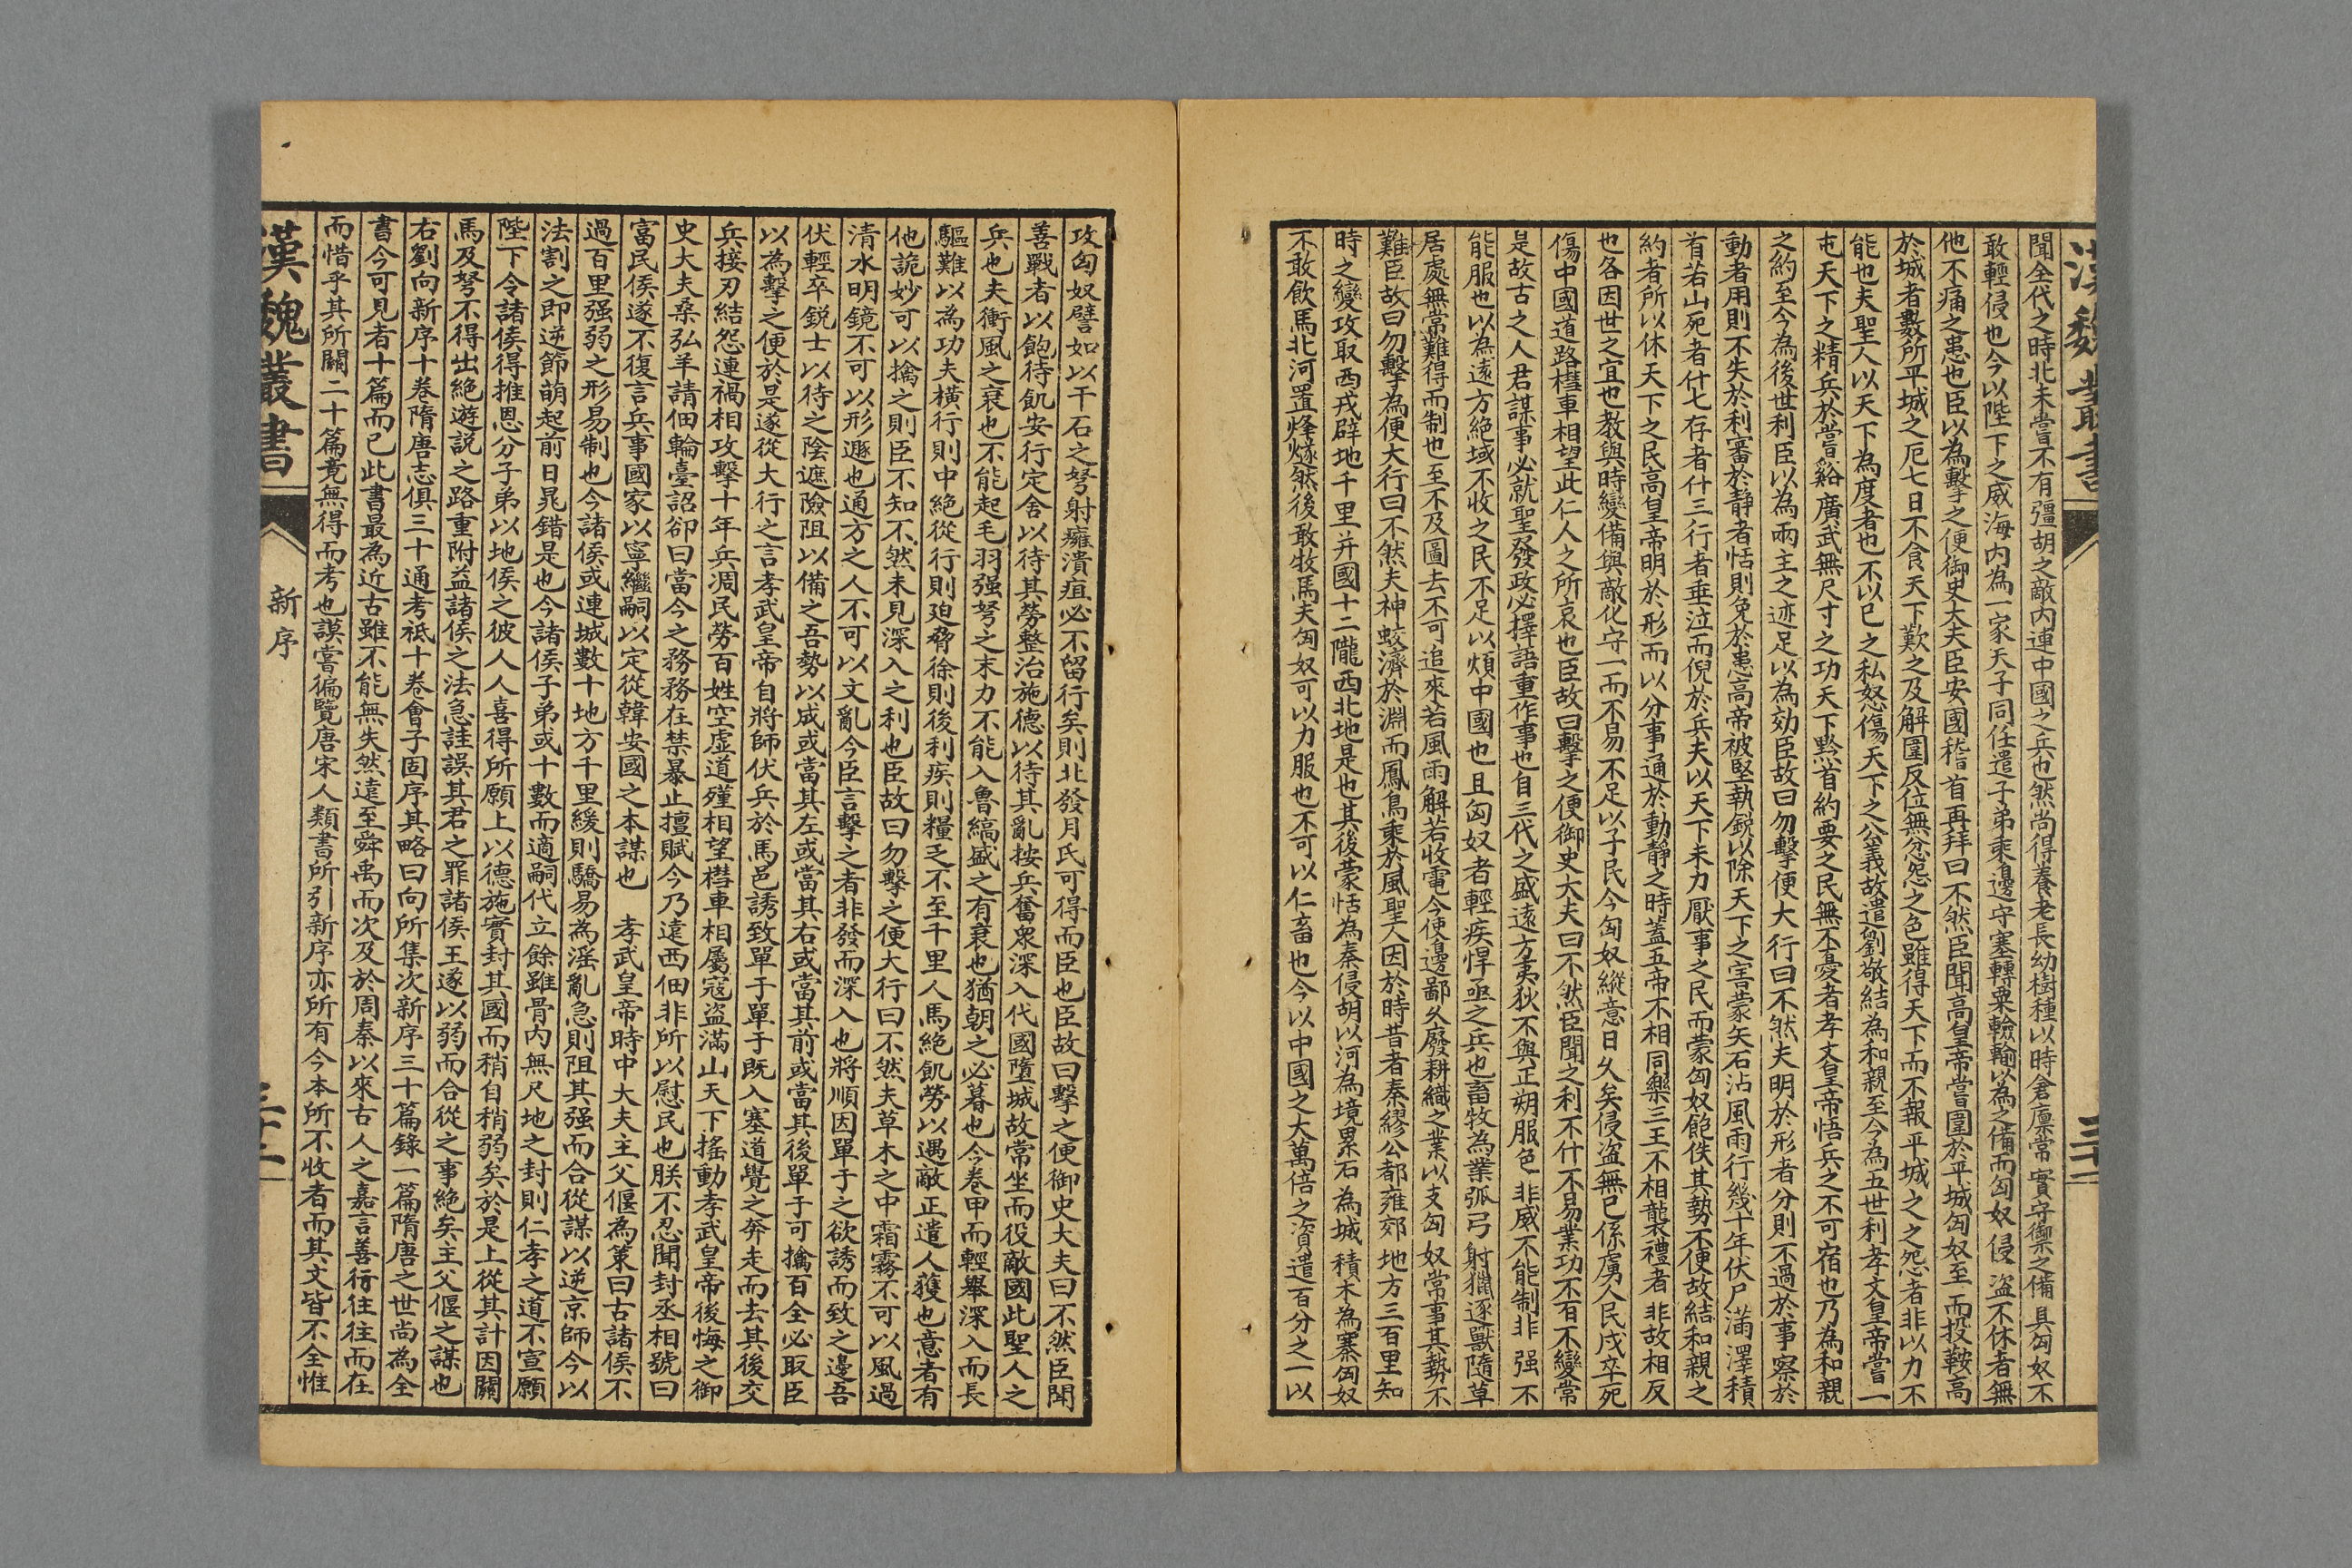 漢魏叢書
聞全代之時北未嘗不有彊胡之敵内連中國之兵也然尚得養老長幼樹種以時倉廩常實守禦之備具匈奴不
敢輕侵也今以陛下之威海内為一家天子同任遣子弟乘邊守塞轉粟輓輸以為之備而匈奴侵盗不休者無
他不痛之患也臣以為擊之便御史大夫臣安國稽首再拜曰不然臣聞高皇帝嘗圍於平城匈奴至而投鞍高
於城者數所平城之厄七日不食天下歎之及解圍反位無忿怨之色雖得天下而不報平城之之怨者非以力不
能也夫聖人以天下為度者也不以己之私怒傷天下之公義故遣劉敬結為和親至今為五世利孝文皇帝嘗一
屯天下之精兵於嘗谿廣武無尺寸之功天下黔首約要之民無不憂者孝文皇帝悟兵之不可宿也乃為和親
之約至今為後世利臣以為兩主之迹足以為効臣故曰勿擊便大行曰不然夫明於形者分則不過於事察於
動者用則不失於利審於静者恬則免於患高帝被堅執鋭以除天下之害蒙矢石沾風雨行幾十年伏尸滿澤積
首若山死者什七存者什三行者垂泣而倪於兵夫以天下末力厭事之民而蒙匈奴飽佚其勢不便故結和親之
約者所以休天下之民高皇帝明於形而以分事通於動静之時蓋五帝不相同樂三王不相襲禮者非故相反
也各因世之宜也教與時變備與敵化守一而不易不足以子民今匈奴縱意日久矣侵盗無已係虜人民戍卒死
傷中國道路槥車相望此仁人之所哀也臣故曰擊之便御史大夫曰不然臣聞之利不什不易業功不百不變常
是故古之人君謀事必就聖發政必擇語重作事也自三代之盛遠方夷狄不與正朔服色非威不能制非强不
能服也以為遠方絶域不收之民不足以煩中國也且匈奴者輕疾悍亟之兵也畜牧為業弧弓射獵逐獸隨草
居處無常難得而制也至不及圖去不可追來若風雨解若收電今使邊鄙久廢耕織之業以支匈奴常事其勢不
難臣故曰勿擊為便大行曰不然夫神蛟濟於淵而鳳鳥乘於風聖人因於時昔者秦繆公都雍郊地方三百里知
時之變攻取西戎辟地千里并國十二隴西北地是也其後蒙恬為秦侵胡以河為境累石為城積木為寨匈奴
不敢飲馬北河置烽燧然後敢牧馬夫匈奴可以力服也不可以仁畜也今以中國之大萬倍之資遣百分之一以
攻匈奴譬如以千石之弩射癰潰疽必不留行矣則北發月氏可得而臣也臣故曰擊之便御史大夫曰不然臣聞
善戰者以飽待飢安行定舍以待其勞整治施德以待其亂按兵奮衆深入代國墮城故常坐而役敵國此聖人之
兵也夫衝風之衰也不能起毛羽强弩之末力不能入魯縞盛之有衰也猶朝之必暮也今卷甲而輕舉深入而長
驅難以為功夫横行則中絶從行則廹脅徐則後利疾則糧乏不至千里人馬絶飢勞以遇敵正遣人獲也意者有
他詭妙可以擒之則臣不知不然未見深入之利也臣故曰勿擊之便大行曰不然夫草木之中霜霧不可以風過
清水明鏡不可以形遯也通方之人不可以文亂今臣言擊之者非發而深入也將順因單于之欲誘而致之邊吾
伏輕卒鋭士以待之陰遮險阻以備之吾勢以成或當其左或當其右或當其前或當其後單于可擒百全必取臣
以為擊之便於是遂從大行之言孝武皇帝自將師伏兵於馬邑誘致單于單于既入塞道覺之奔走而去其後交
兵接刃結怨連禍相攻擊十年兵凋民勞百姓空虚道殣相望槥車相屬寇盗滿山天下摇動孝武皇帝後悔之御
史大夫桑弘羊請佃輪臺詔卻曰當今之務務在禁暴止擅賦今乃遠西佃非所以慰民也朕不忍聞封丞相號曰
富民侯遂不復言兵事國家以寧繼嗣以定從韓安國之本謀也　孝武皇帝時中大夫主父偃為策曰古諸侯不
過百里强弱之形易制也今諸侯或連城數十地方千里緩則驕易為滛亂急則阻其强而合從謀以逆京師今以
法割之即逆節萌起前日晁錯是也今諸侯子弟或十數而適嗣代立餘雖骨肉無尺地之封則仁孝之道不宣願
陛下令諸侯得推恩分子弟以地侯之彼人人喜得所願上以德施實封其國而稍自稍弱矣於是上從其計因關
馬及弩不得出絶遊説之路重附益諸侯之法急詿誤其君之罪諸侯王遂以弱而合從之事絶矣主父偃之謀也
右劉向新序十卷隋唐志俱三十通考祗十卷會子固序其略曰向所集次新序三十篇錄一篇隋唐之世尚為全
書今可見者十篇而已此書最為近古雖不能無失然遠至舜禹而次及於周秦以來古人之嘉言善行往往而在
而惜乎其所闕二十篇竟無得而考也謨嘗徧覽唐宋人類書所引新序亦所有今本所不收者而其文皆不全惟
漢魏叢書
新序